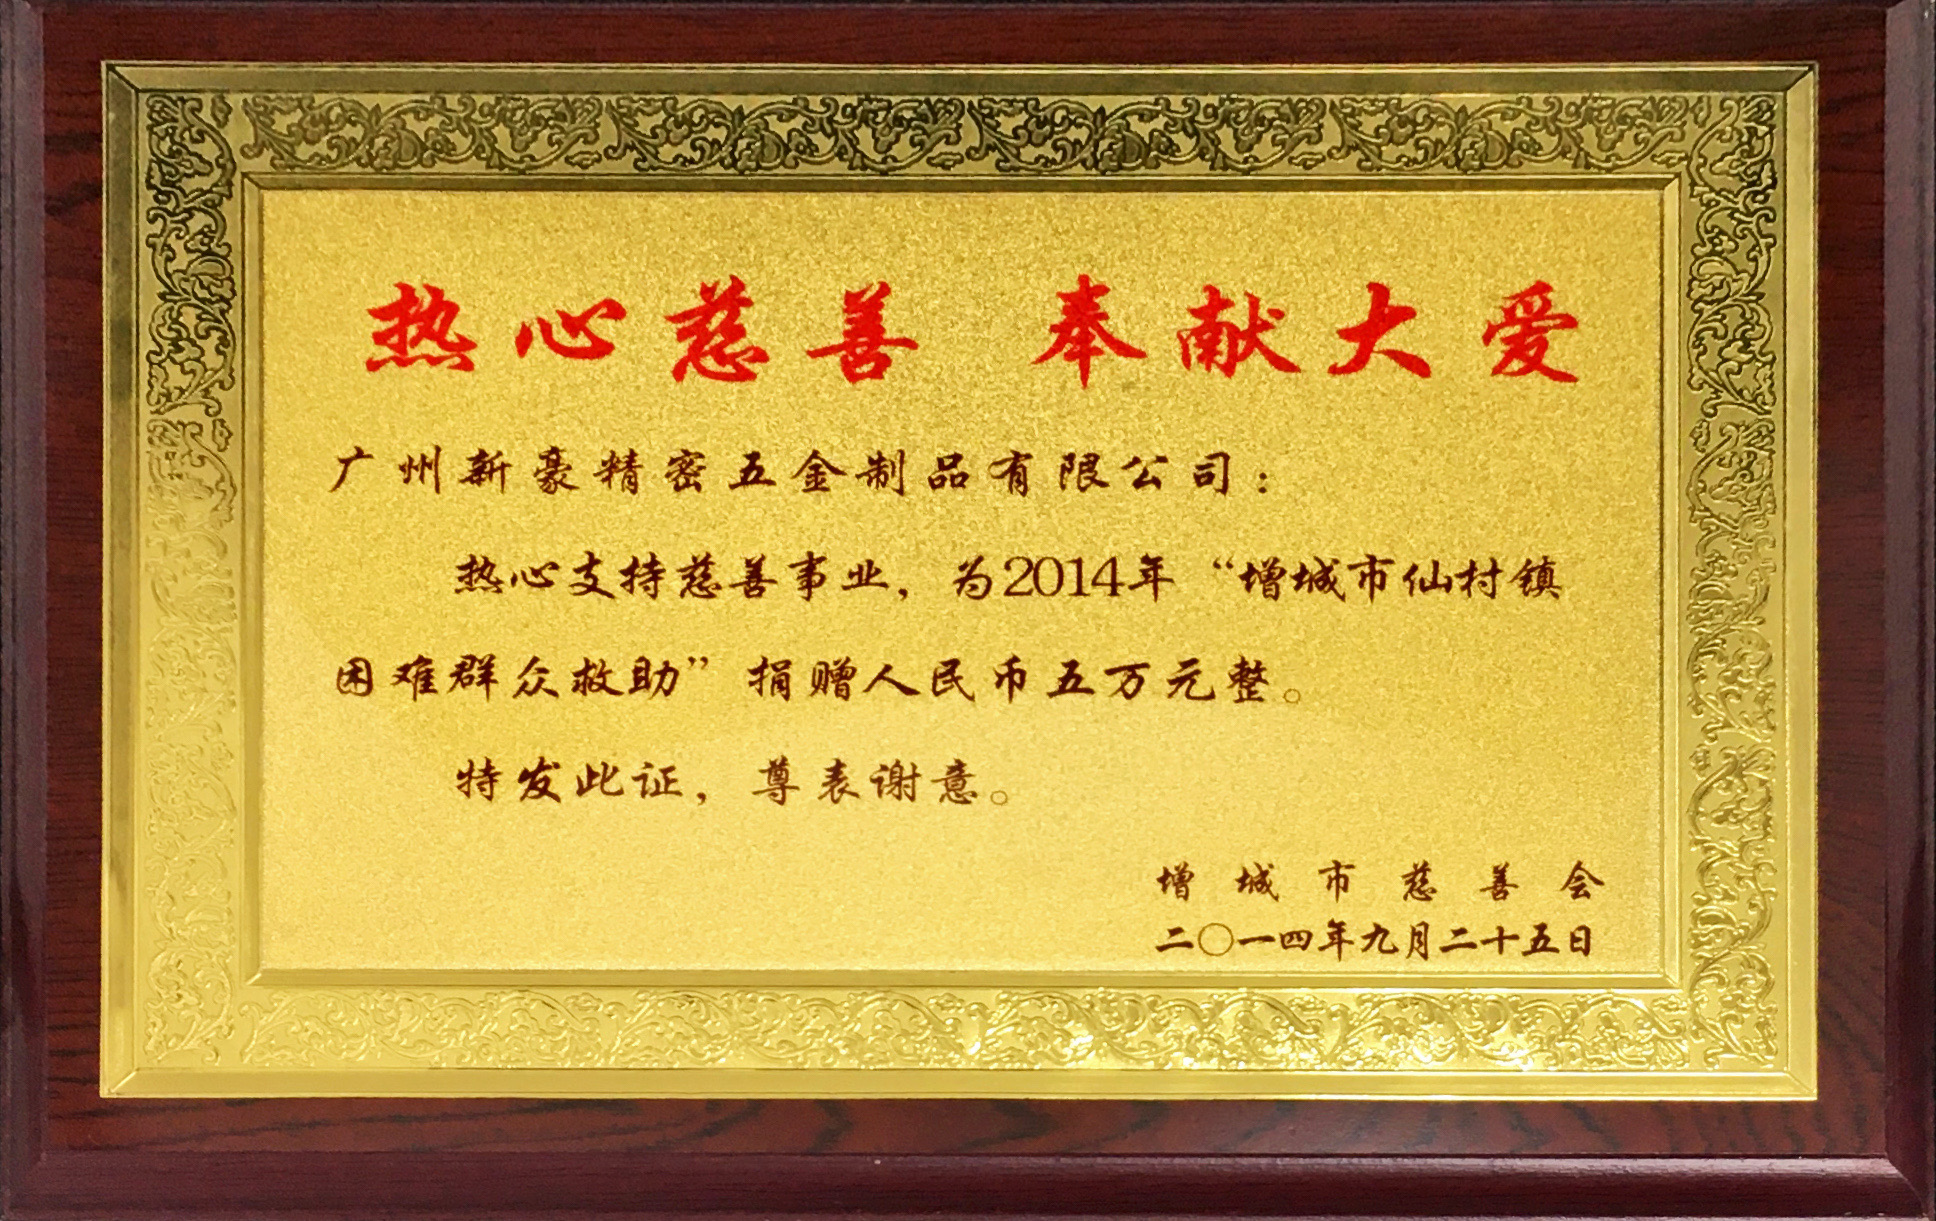 热心慈善 奉献大爱
广州新豪精密五金制品有限公司：
热心支持慈善事业，为2014年“增城市仙村镇
困难群众救助”捐赠人民币五万元整。
特发此证，尊表谢意。
增城市慈善会
二〇一四年九月二十五日